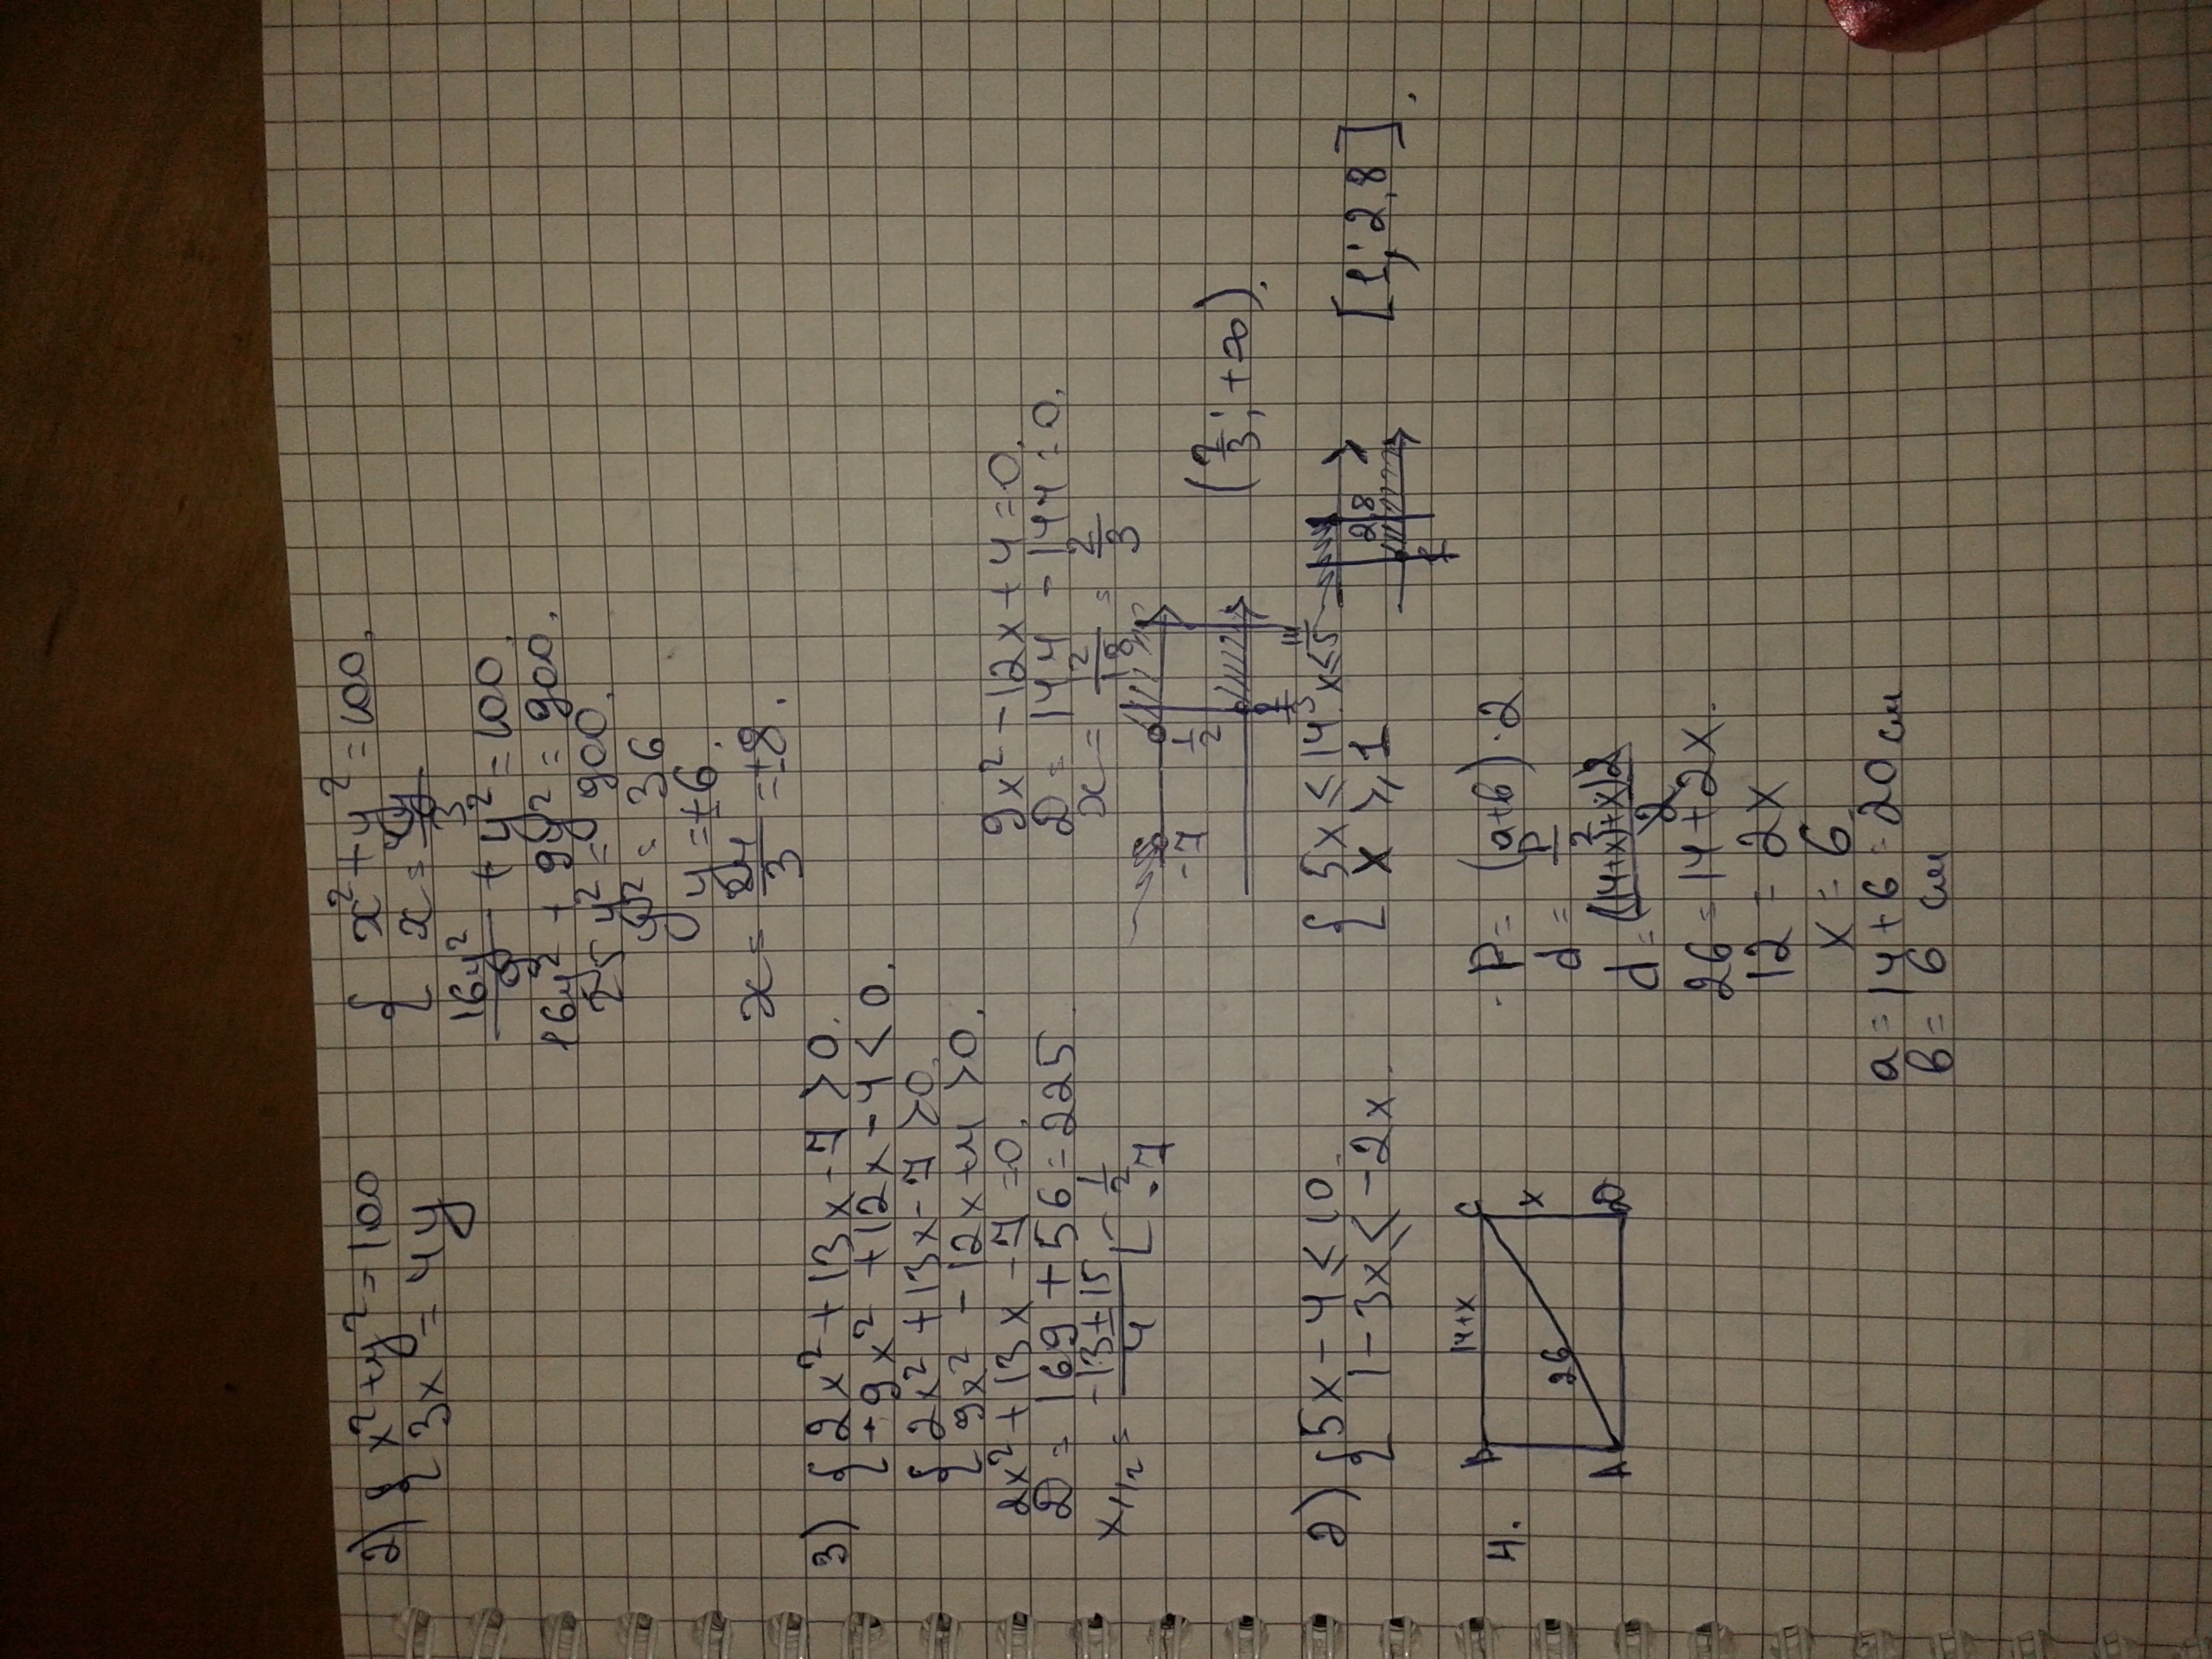 2) { x² + y² = 100
{ 3x = 4y
{ x² + y² = 100.
{ x = 4y/3
16y²/9 + y² = 100.
16y² + 9y² = 900.
25y² = 900.
y² = 36
y = ±6.
x = 4y/3 = ±8.
3) { 2x² + 13x - 7 > 0.
{ -9x² + 12x - 4 < 0.
{ 2x² + 13x - 7 > 0.
{ 9x² - 12x + 4 > 0.
2x² + 13x - 7 = 0.
D = 169 + 56 = 225
x₁,₂ = (-13 ± 15)/4 [ 1/2
-7
9x² - 12x + 4 = 0.
D = 144 - 144 = 0.
x = 12/18 = 2/3
-7 1/2
2/3
(2/3; +∞).
2) { 5x - 4 ≤ 10.
{ 1 - 3x ≤ -2x.
{ 5x ≤ 14 x ≤ 14/5
{ x ≥ 1
2,8
1
[1; 2,8].
4.
B 14+x C
26 x
A D
P = (a+b)·2
d = P/2
26 = 14 + 2x.
12 = 2x
x = 6
a = 14 + 6 = 20 см
b = 6 см